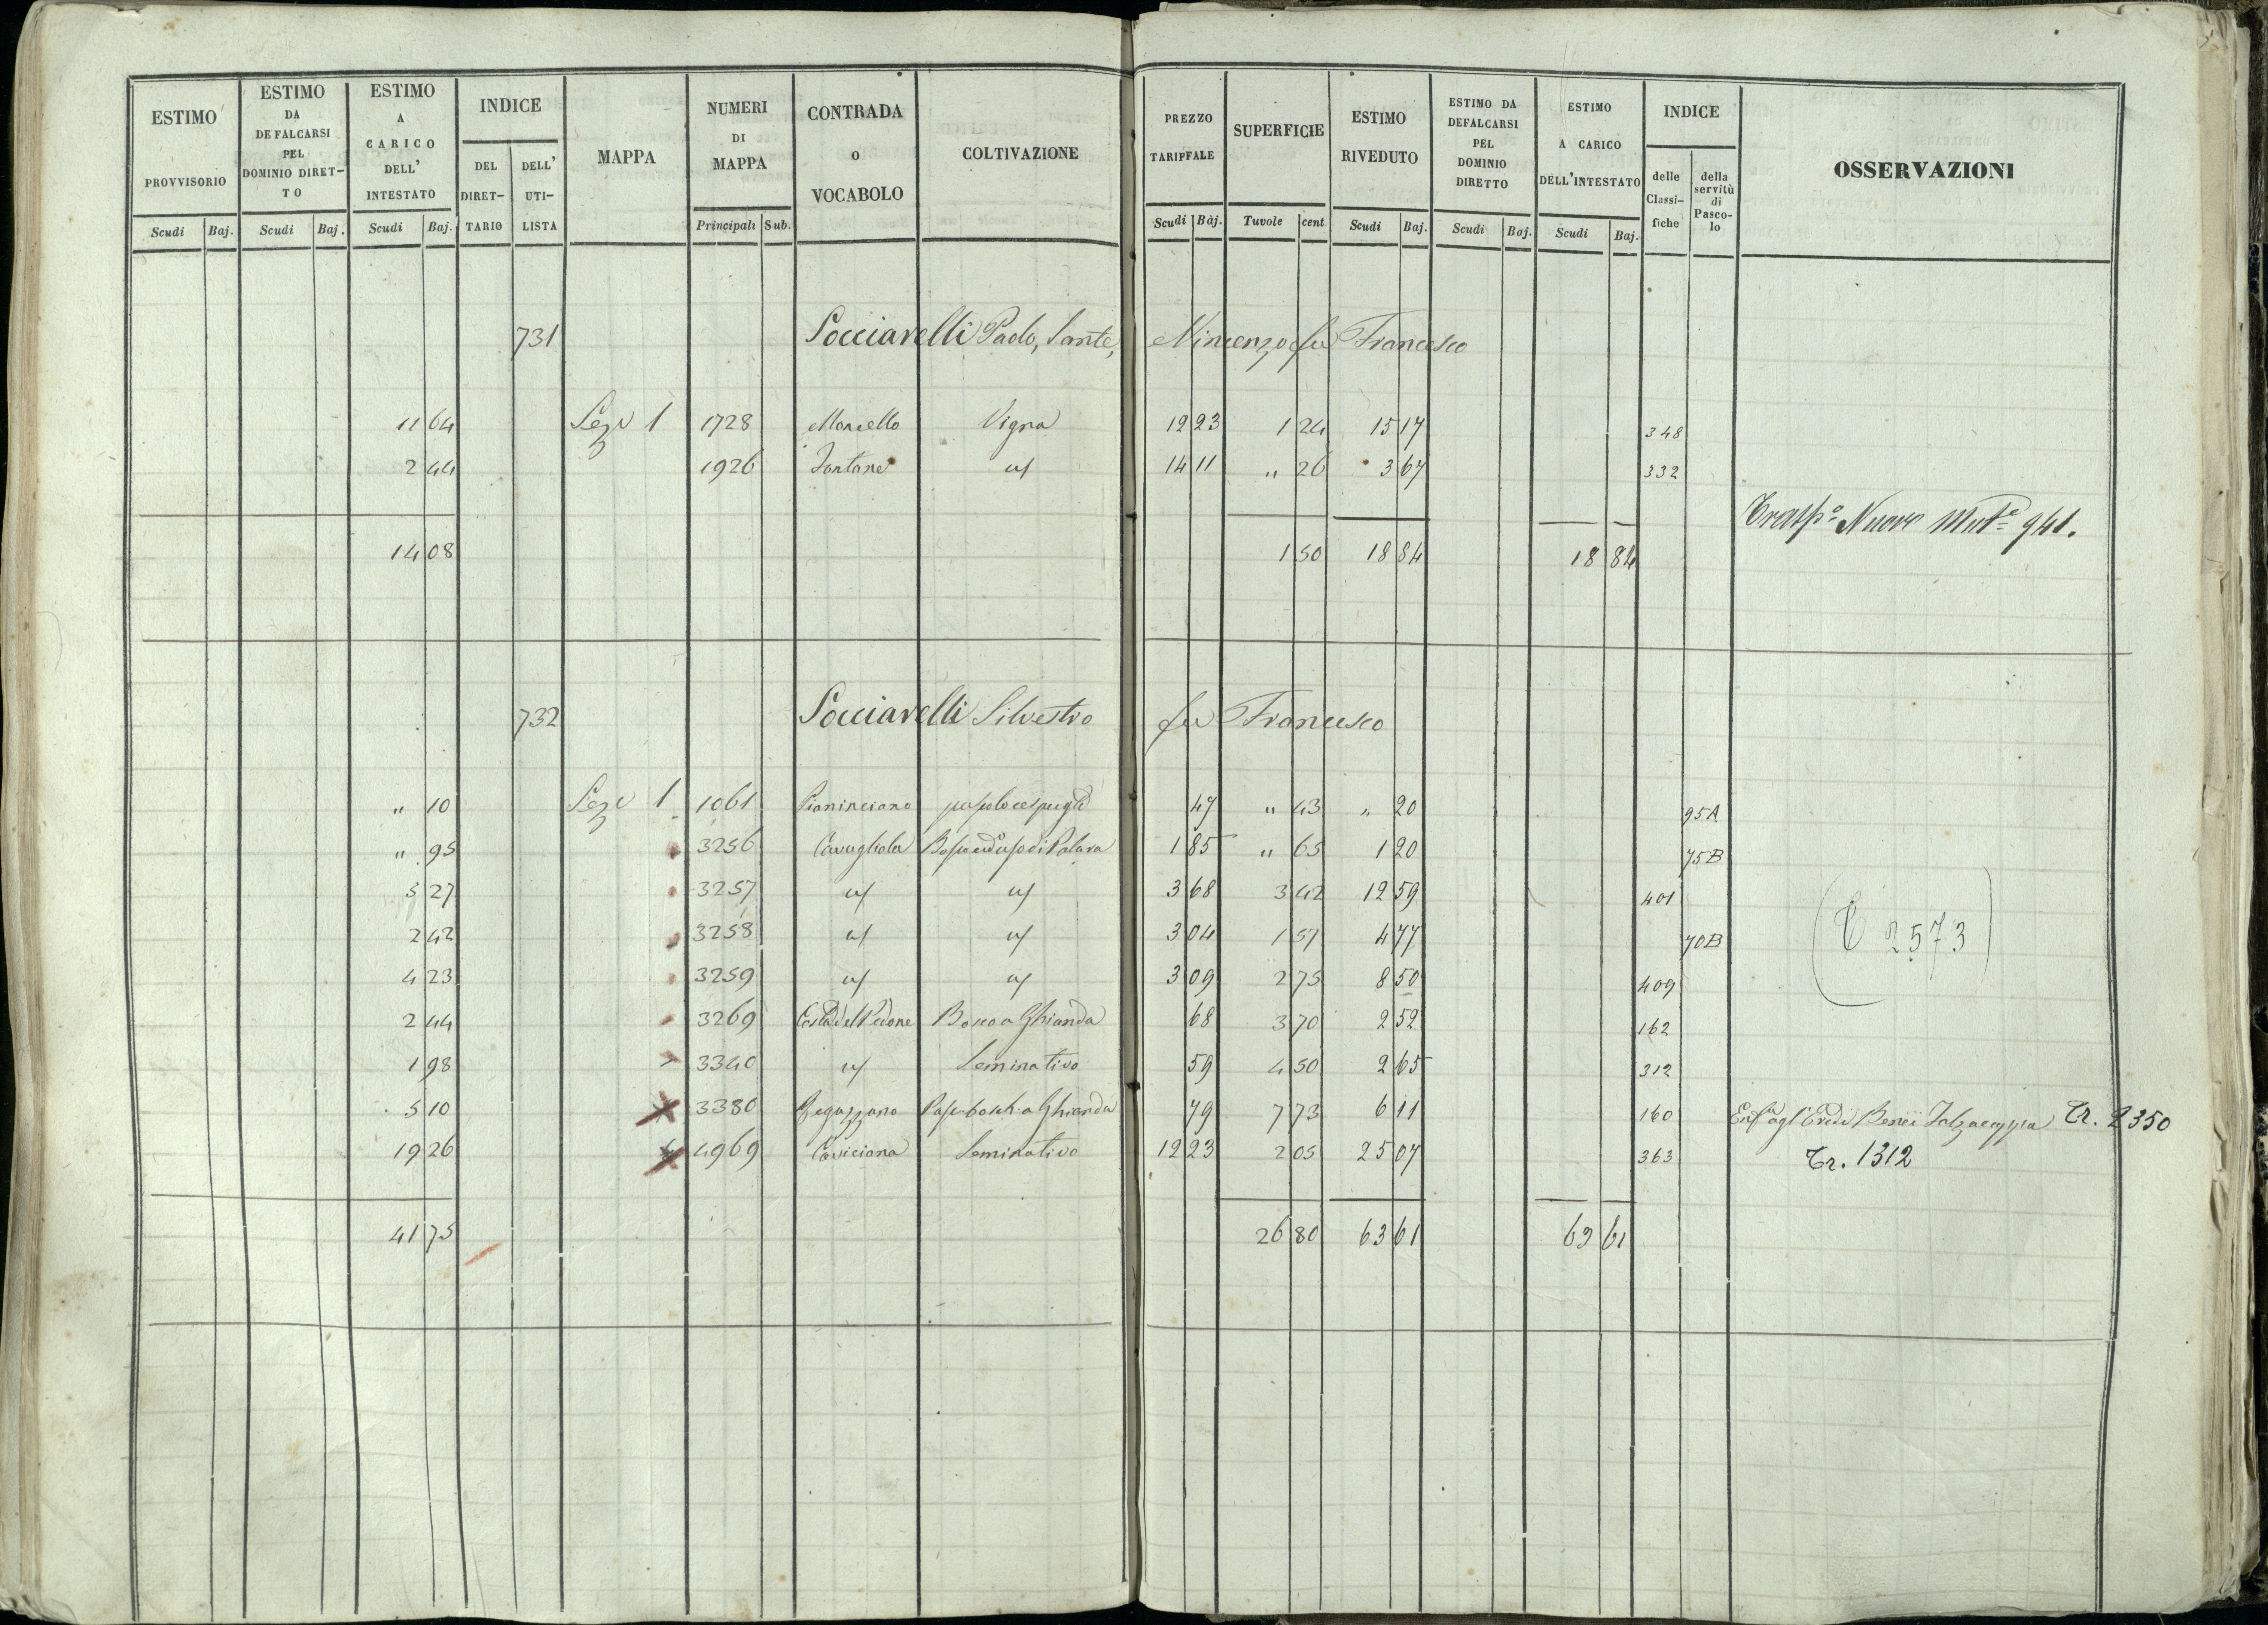 ESTIMO PROVVISORIO Scudi Baj.
ESTIMO DA DEFALCARSI PEL DOMINIO DIRETTO Scudi Baj.
ESTIMO A CARICO DELL' INTESTATO Scudi Baj.
INDICE DEL DIRETTARIO DELL' UTILISTA
MAPPA
NUMERI DI MAPPA Principali Sub.
CONTRADA O VOCABOLO
COLTIVAZIONE
PREZZO TARIFFALE Scudi Baj.
SUPERFICIE Tavole cent.
ESTIMO RIVEDUTO Scudi Baj.
ESTIMO DA DEFALCARSI PEL DOMINIO DIRETTO Scudi Baj.
ESTIMO A CARICO DELL'INTESTATO Scudi Baj.
INDICE delle Classifiche della servitù di Pascolo
OSSERVAZIONI
731 Socciarelli Paolo, Sante, e Vincenzo fu Francesco
11 64 Sez 1 1728 Moncello Vigna 12 23 1 24 15 17 348
2 44 1926 Fontane 14 11 " 26 3 67 332
Traspo Nuovo Mute 941.
14 08 1 50 18 84 18 84
732 Socciarelli Silvestro fu Francesco
" 10 Sez 1 1061 47 " 43 " 20 95A
" 95 3256 Cavugliola 1 85 " 65 1 20 75B
5 27 3257 3 68 3 42 12 59 401
2 42 3258 3 04 1 57 4 77 70B
(T 2573)
4 23 3259 3 09 2 75 8 50 409
2 44 3269 Bosco a Ghianda 68 3 70 2 52 162
1 98 3340 Seminativo 59 4 50 2 65 312
5 10 3380 a Ghianda 79 7 73 6 11 160 Tr. 2350
19 26 4969 Caviciana Seminativo 12 23 2 05 25 07 363 Tr. 1312
41 75 26 80 63 61 63 61